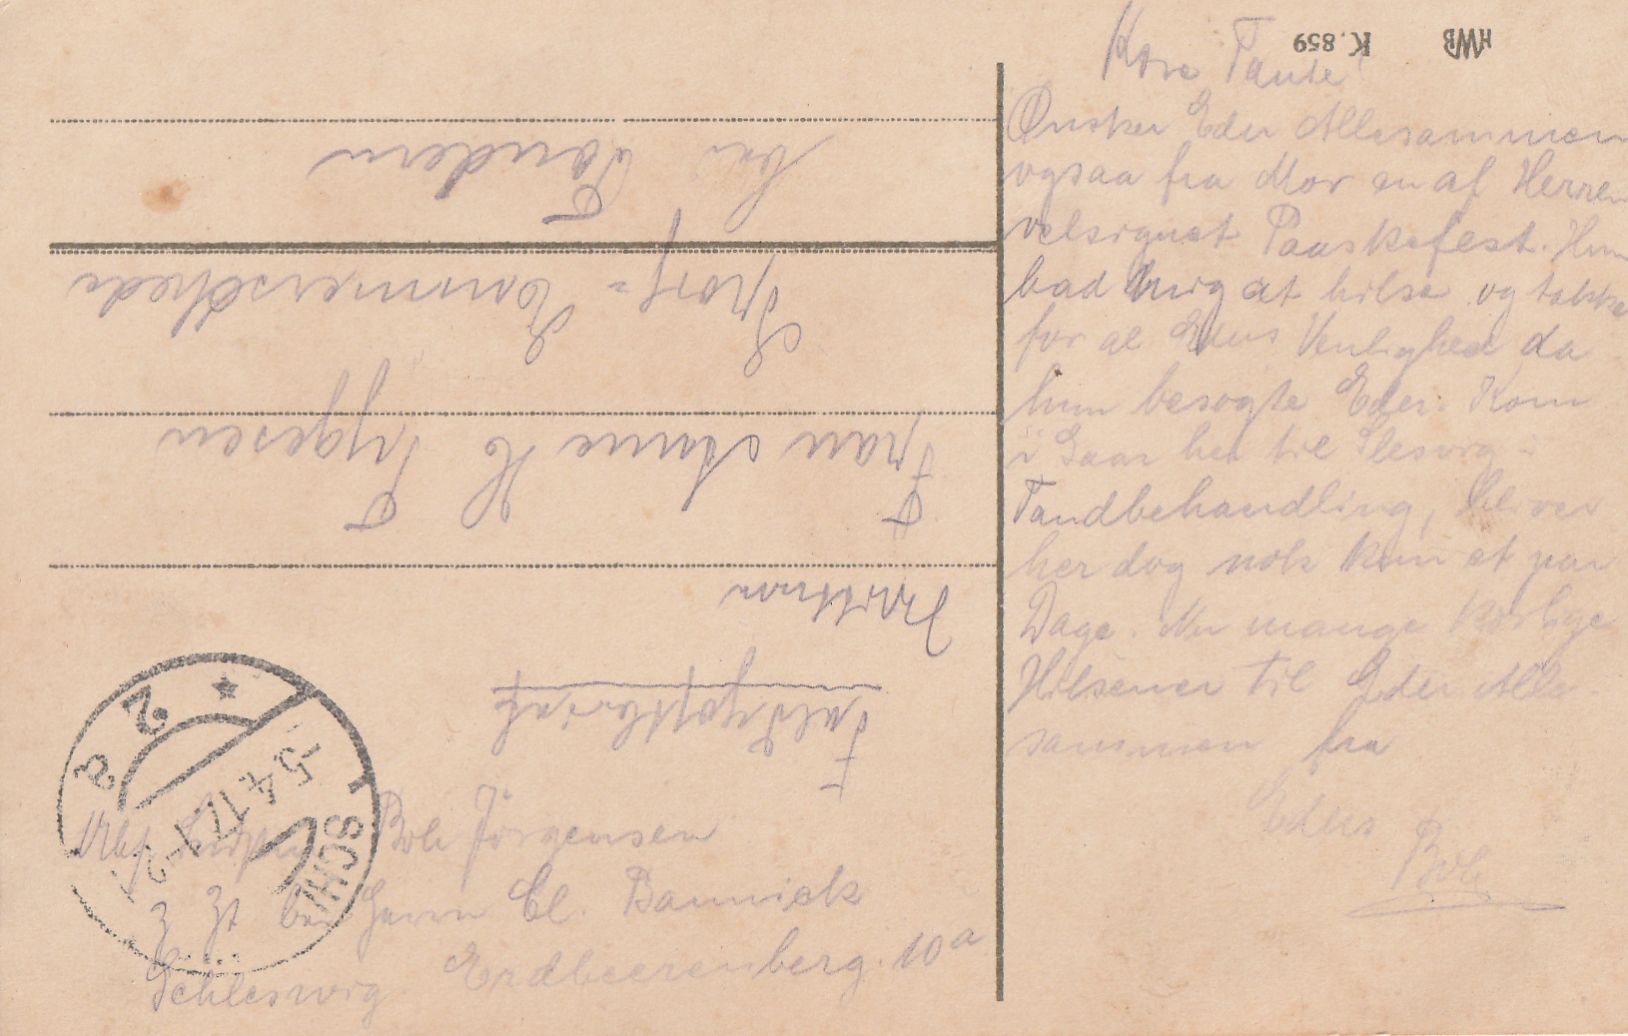 Kære Tante!
Ønsker Eder Allesammen
ogsaa fra Mor en af Herren
velsignet Paaskefest. Hun
bad mig at hilse og takke
for al Eders Venlighed da
hun besøgte Eder. Kom
i Gaar her til Slesvig i
Tandbehandling, bliver
her dog nok kun et par
Dage. Nu mange kærlige
Hilsener til Eder Alle-
sammen fra
Eders
Bob
HWB K. 859
Feldpostbrief
Frau Anne H Tygesen
Emmerschede
bei Tondern
Jörgensen
z Zt bei Herrn Cl. Bannick
Schleswig Erdbeerenberg. 10a
SCHL
-5.4.17
2
a